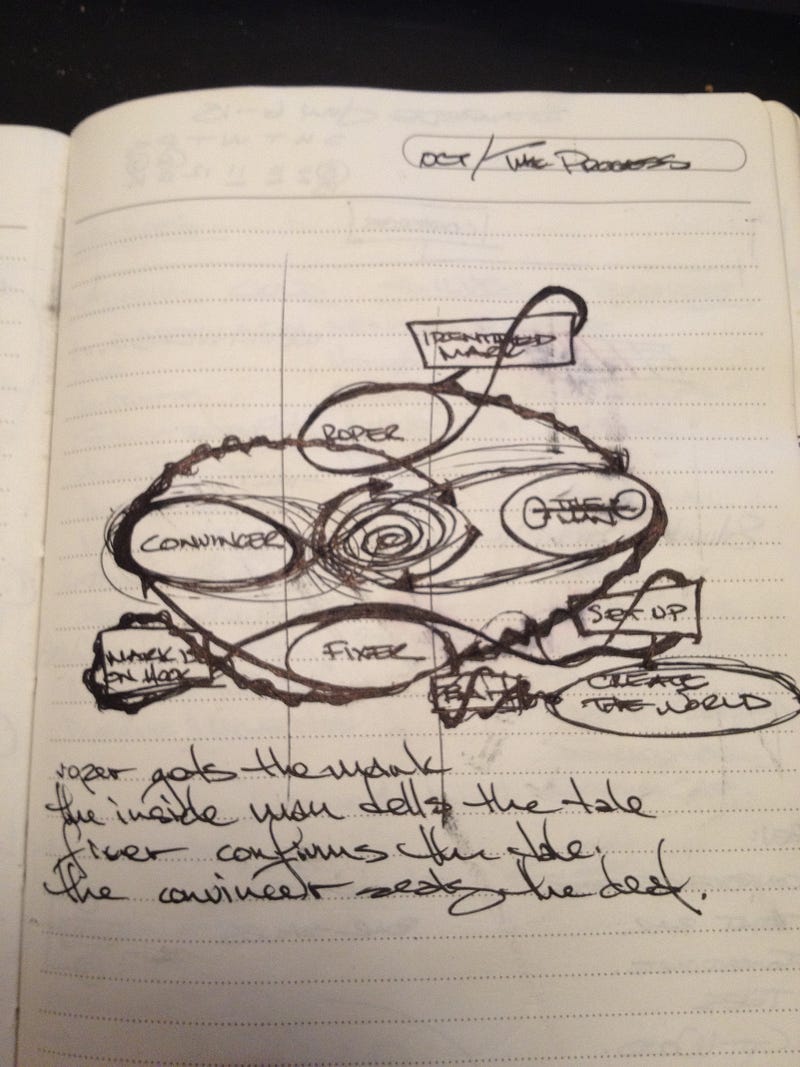 OCT/THE PROCESS
IDENTIFIED
MARK
ROPER
CONVINCER
THE
SET UP
FIXER
MARK IS
ON HOOK
CREATE
THE WORLD
roper gets the mark
the inside man tells the tale
fixer confirms the tale.
the convincer seals the deal.